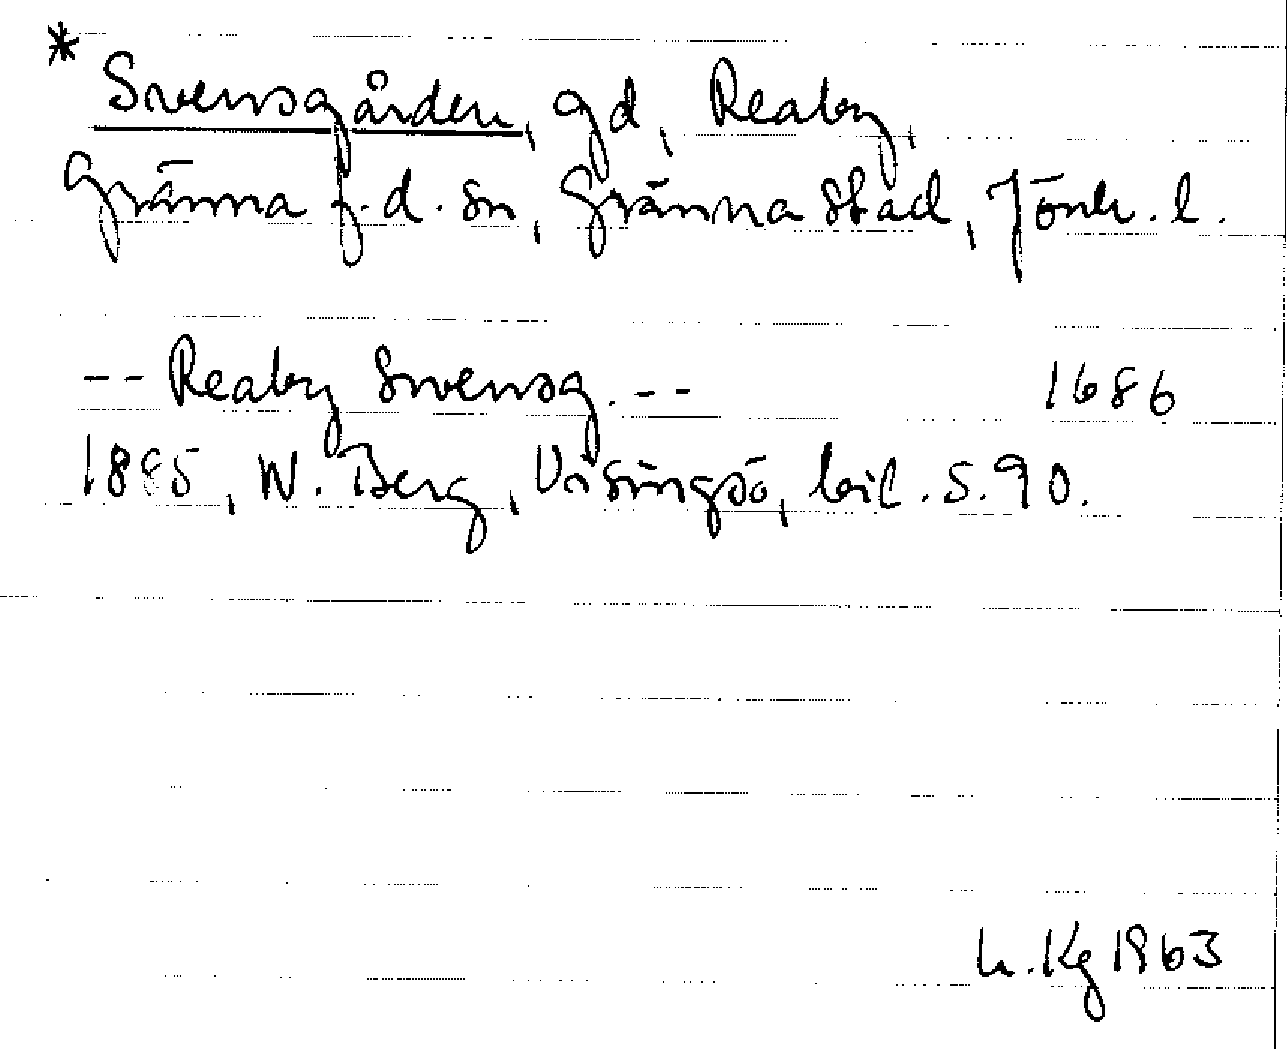 * Svensgården, gd, Reaby,
Gränna f.d. sn, Gränna stad, Jönk. l.
-- Reaby Swensg. -- 1686
1885, W. Berg, Visingsö, bil. s. 90.
L. Kg 1963